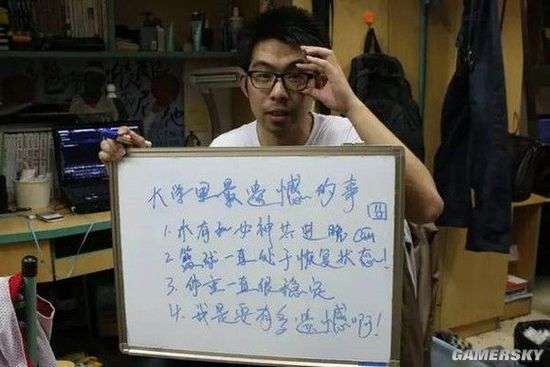 大学里最遗憾的事 囧
1.木有和女神共进晚can
2.篮球一直处于恢复状态!
3.体重一直很稳定
4.我是要有多遗憾啊!
GAMERSKY